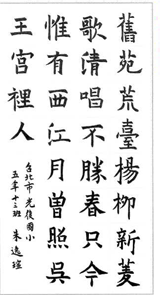 舊苑荒臺揚柳新菱
歌清唱不勝春只今
惟有西江月曾照吳
王宮裡人
台北市光復國小
五年十三班 朱逸